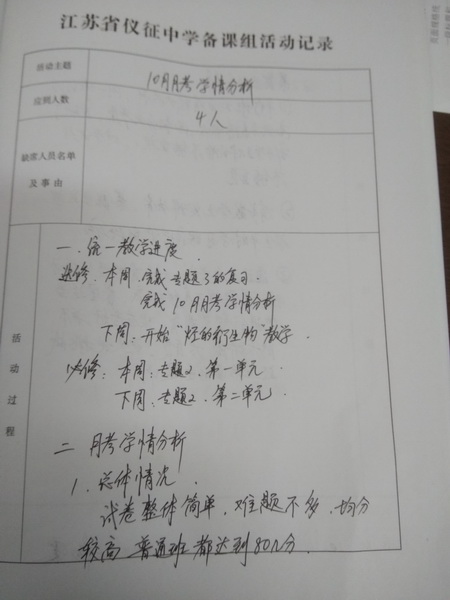 江苏省仪征中学备课组活动记录
活动主题
10月月考学情分析
应到人数
4人
缺席人员名单
及事由
活动过程
一、统一教学进度.
选修、本周、完成专题3的复习.
完成10月月考学情分析
下周:开始"烃的衍生物"教学.
必修:本周:专题2、第一单元.
下周、专题2、第二单元.
二 月考学情分析
1、总体情况
试卷整体简单,难题不多,均分
较高 普通班都达到80分.